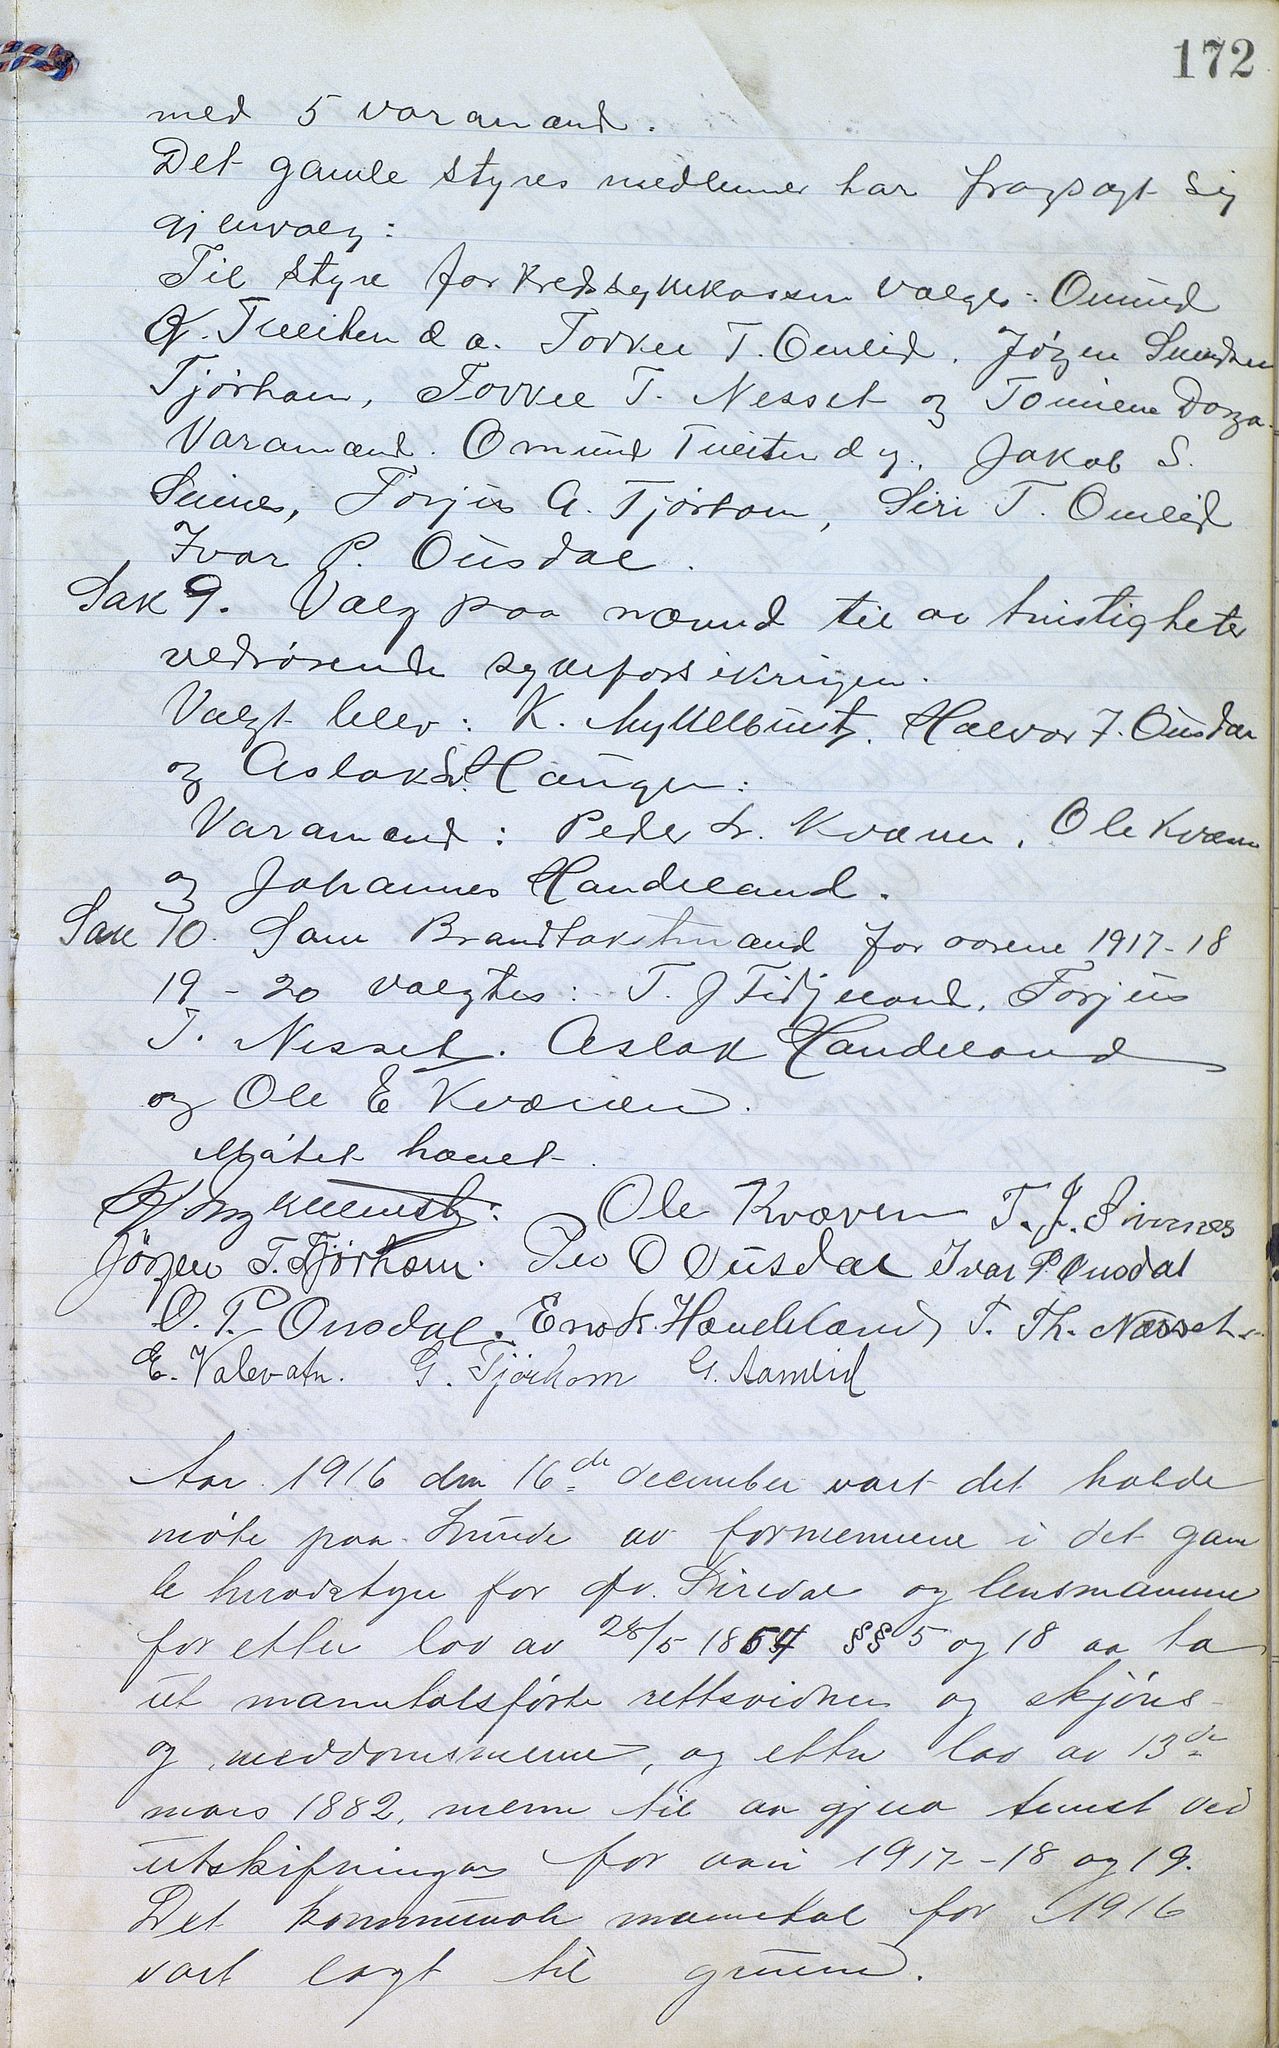 172
med 5 varamænd.
Det gamle styres medlemer har fragsagt sig
gjenvalg:
Til styre for kredssykekassen valges: Omund
K. Tveiten d æ. Torkel T. Omlid, Jørgen Svendsen
Tjørhom, Torkel T. Nesset og Tomine Dorga.
Varamænd. Omund Tveiten d y, Jakob S.
Sines, Torjus A. Tjørhom, Siri T. Omlid
Ivar P. Ousdal.
Sak 9. Valg paa nævnd til av tvistigheter
vedrørende sykeforsikringen.
Valgt blev: K. Myklebust, Halvor J. Ousdal
og Aslak S. Haugen:
Varamænd: Peder S. Kvæven, Ole Kvæven
og Johannes Handeland.
Sak 10. Som Brandtakstmænd for aarene 1917-18
19-20 valgtes: T. J Fidjeland, Torjus
T. Nesset. Aslak Handeland
og Ole E Kvæven.
Møtet hævet.
K Myklebust. Ole Kvæven T. J. Sirnes
Jørgen T. Tjørhom. Peo O Ousdal Ivar P. Ousdal
O. P. Ousdal. Enok Handeland T. Th. Nesset
E. Valevatn. G. Tjørhom G. Aamlid
Aar 1916 den 16de december vart det halde
møte paa Lunde av formennene i det gam
le heradstyre for øv. Siredal og lensmannen
for etter lov av 28/5 1854 §§ 5 og 18 aa ta
ut manntalsførte rettsvidner og skjøns-
og meddomsmenn, og etter lov av 13de
mars 1882, menn til aa gjera tenest ved
utskifningar for aari 1917-18 og 19.
Det kommunale manntal for 1916
vart lagt til grunn.